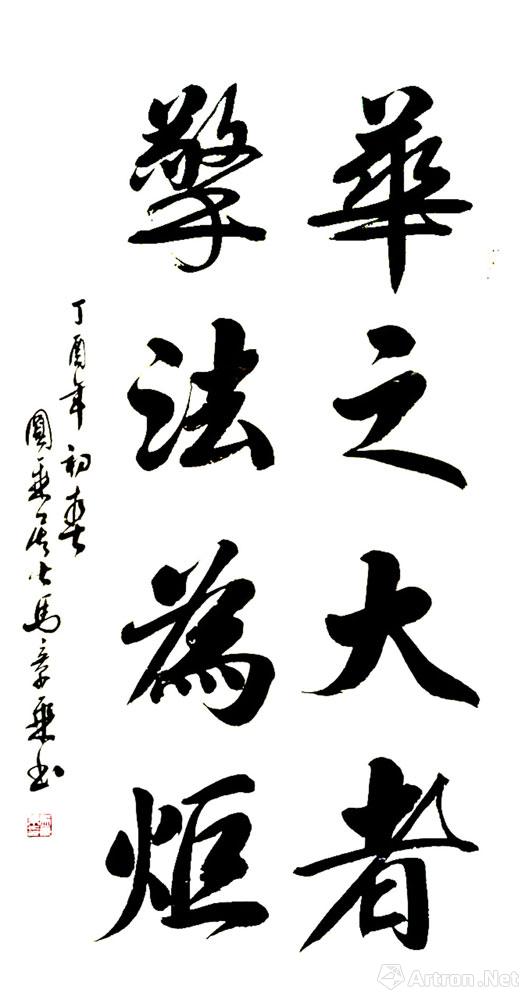 華之大者
擎法為炬
丁酉年初春
圓乘居士馬章乘书
Artron.Net